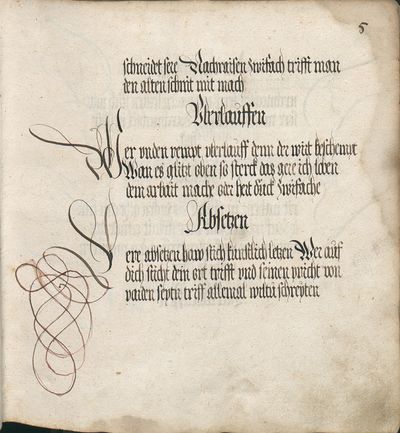 5
schneidet sere Nachraisen zwifach trifft man
den alten schnit mit mach
Vberlauffen
Wer vnden remet vberlauff denn der wirt beschemt
Wan es glitzt oben so sterck das gere ich loben
dein arbait mache oder hert druck zwifache
Absetzen
Lere absetzen haw stich kunstlich letzen Wer auf
dich sticht dein ort trifft vnd seinen pricht von
paiden seytn triff allemal wiltu schreyten